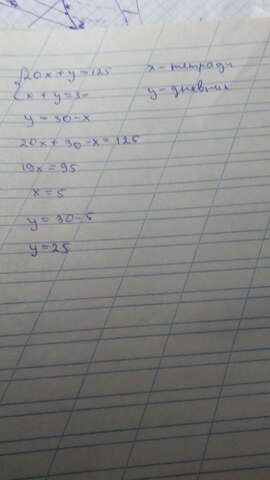 20x + y = 125 x - тетради
x + y = 30 y - дневник
y = 30 - x
20x + 30 - x = 125
19x = 95
x = 5
y = 30 - 5
y = 25